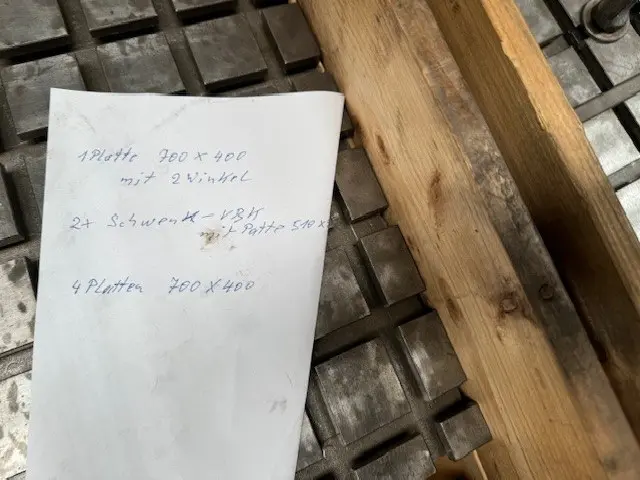 1 Platte 700 x 400
mit 2 Winkel
2x Schwenk-VBK
mit Patte 510 x
4 Platten 700 x 400